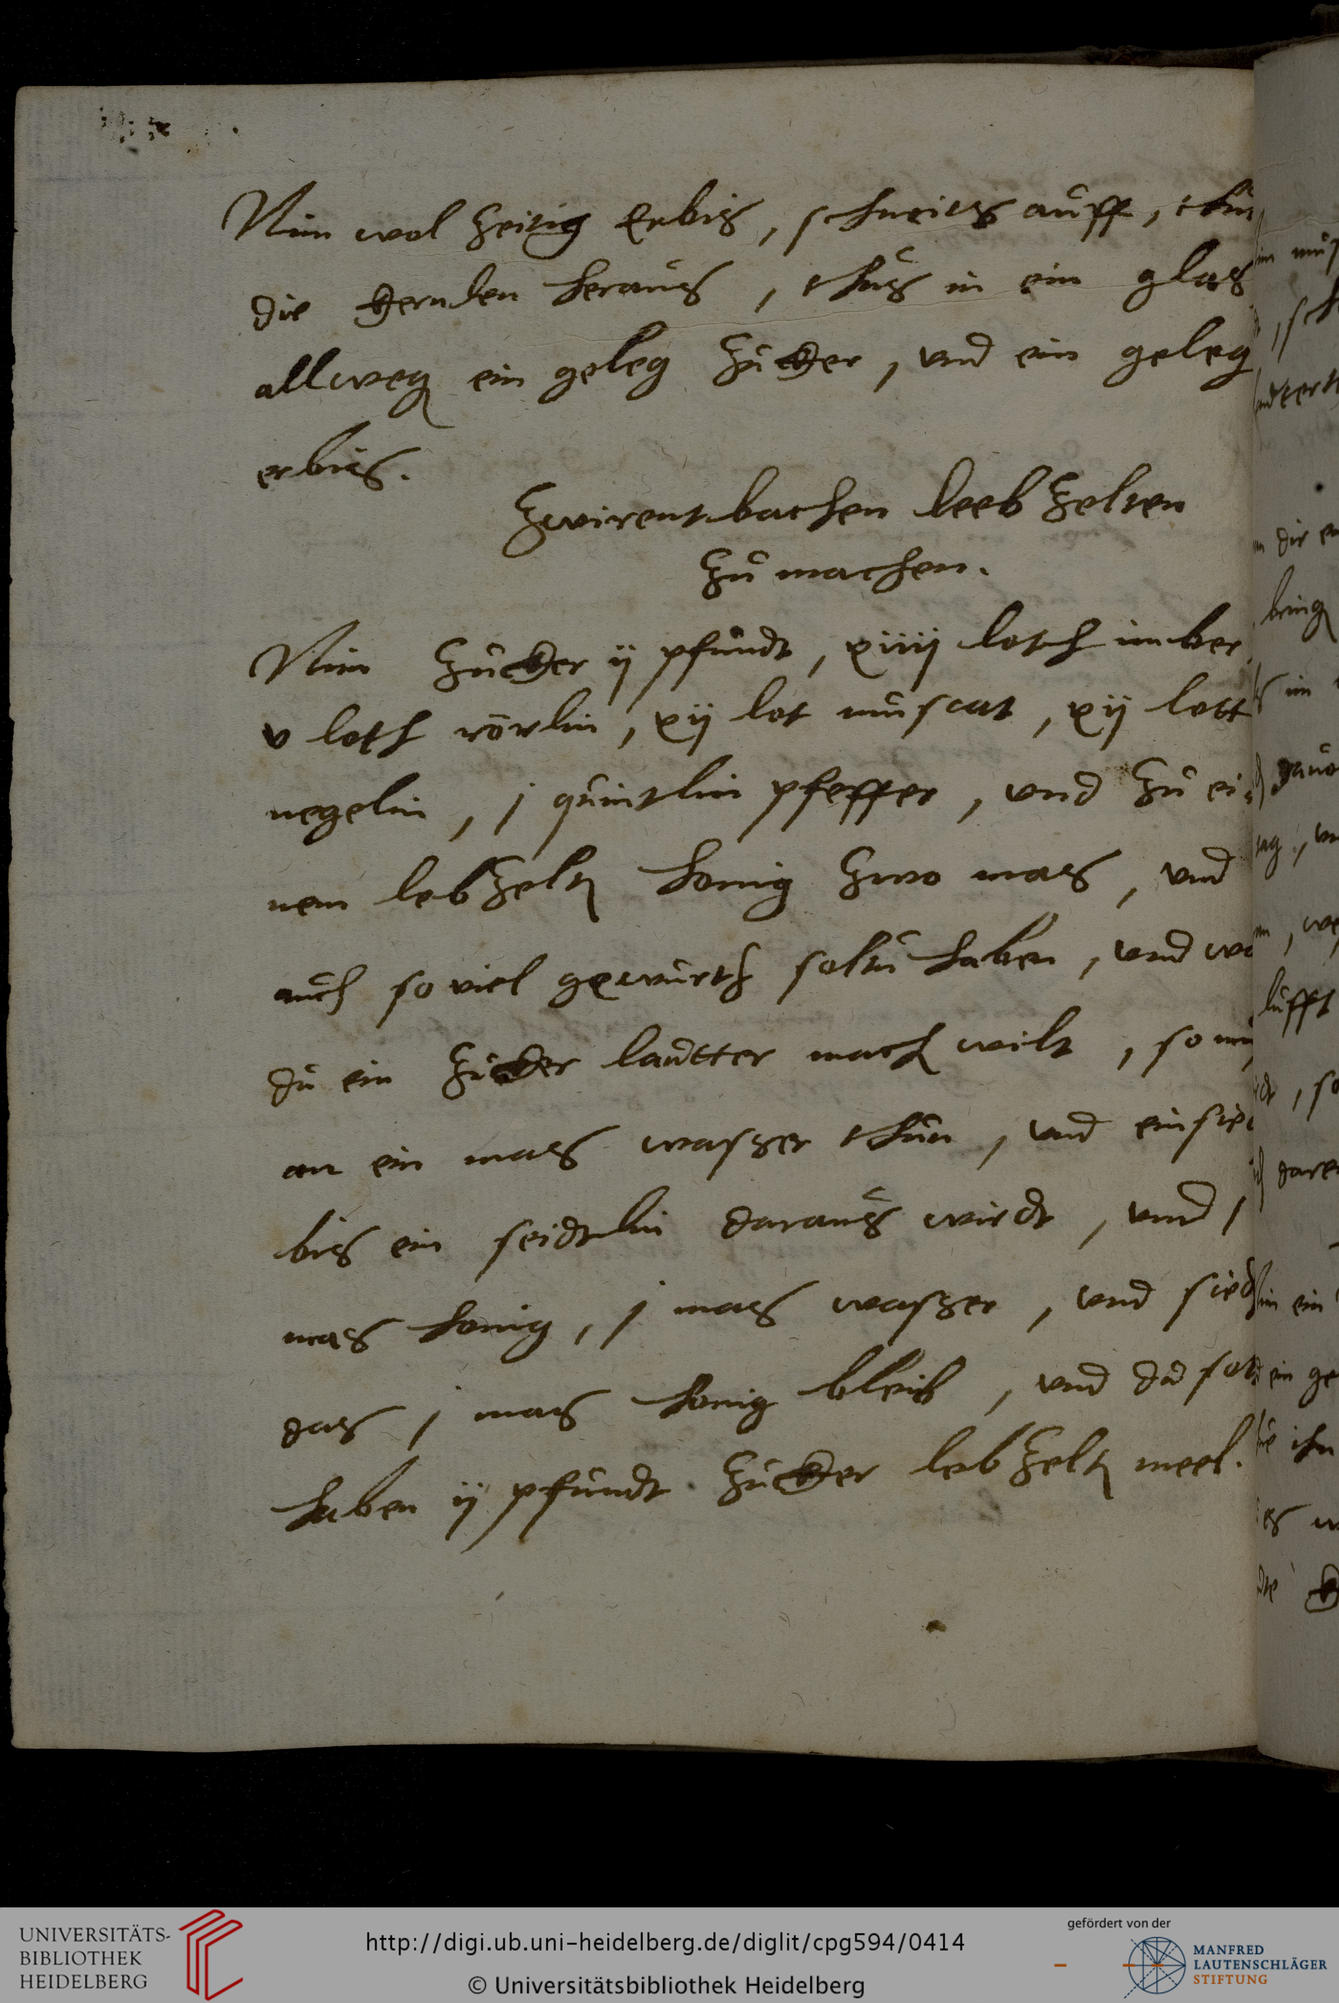 Nim wol Zeitig Erbis, schneids auff, thu
die kernlen heraus, thus in ein glas
allweg ein geleg Zucker, vnd ein geleg
erbis.
Zwirent bachen leeb Zelten
Zu machen.
Nim Zucker ij pfundt, xiiij loth imber
v loth rörlin, xij lot muscat, xij lott
negelin, j quintlin pfeffer, vnd Zu ei
nem lebZeltn honig Zwo mas, vnd
auch so viel gewürtz soltu haben, vnd
du ein Zucker lautter machn wilt, so
an ein mas wasser thun, vnd einsied
bis ein seidtlin daraus wirdt, vnnd j
mas honig, j mas wasser, vnd sied
das j mas honig bleib, vnd du solt
haben ij pfundt Zucker lebZeltn meel.
UNIVERSITÄTS-
BIBLIOTHEK
HEIDELBERG
http://digi.ub.uni-heidelberg.de/diglit/cpg594/0414
© Universitätsbibliothek Heidelberg
gefördert von der
MANFRED
LAUTENSCHLÄGER
STIFTUNG